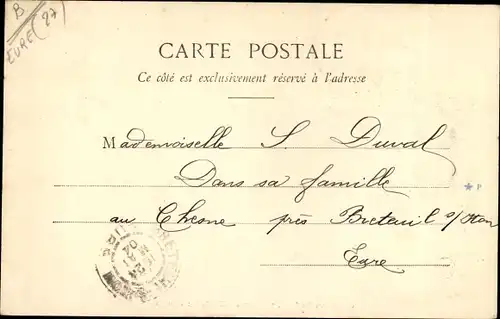 B
EURE (27)
CARTE POSTALE
Ce côté est exclusivement réservé à l'adresse
Mademoiselle S. Duval
Dans sa famille
au Chesne près Breteuil s/Iton
Eure